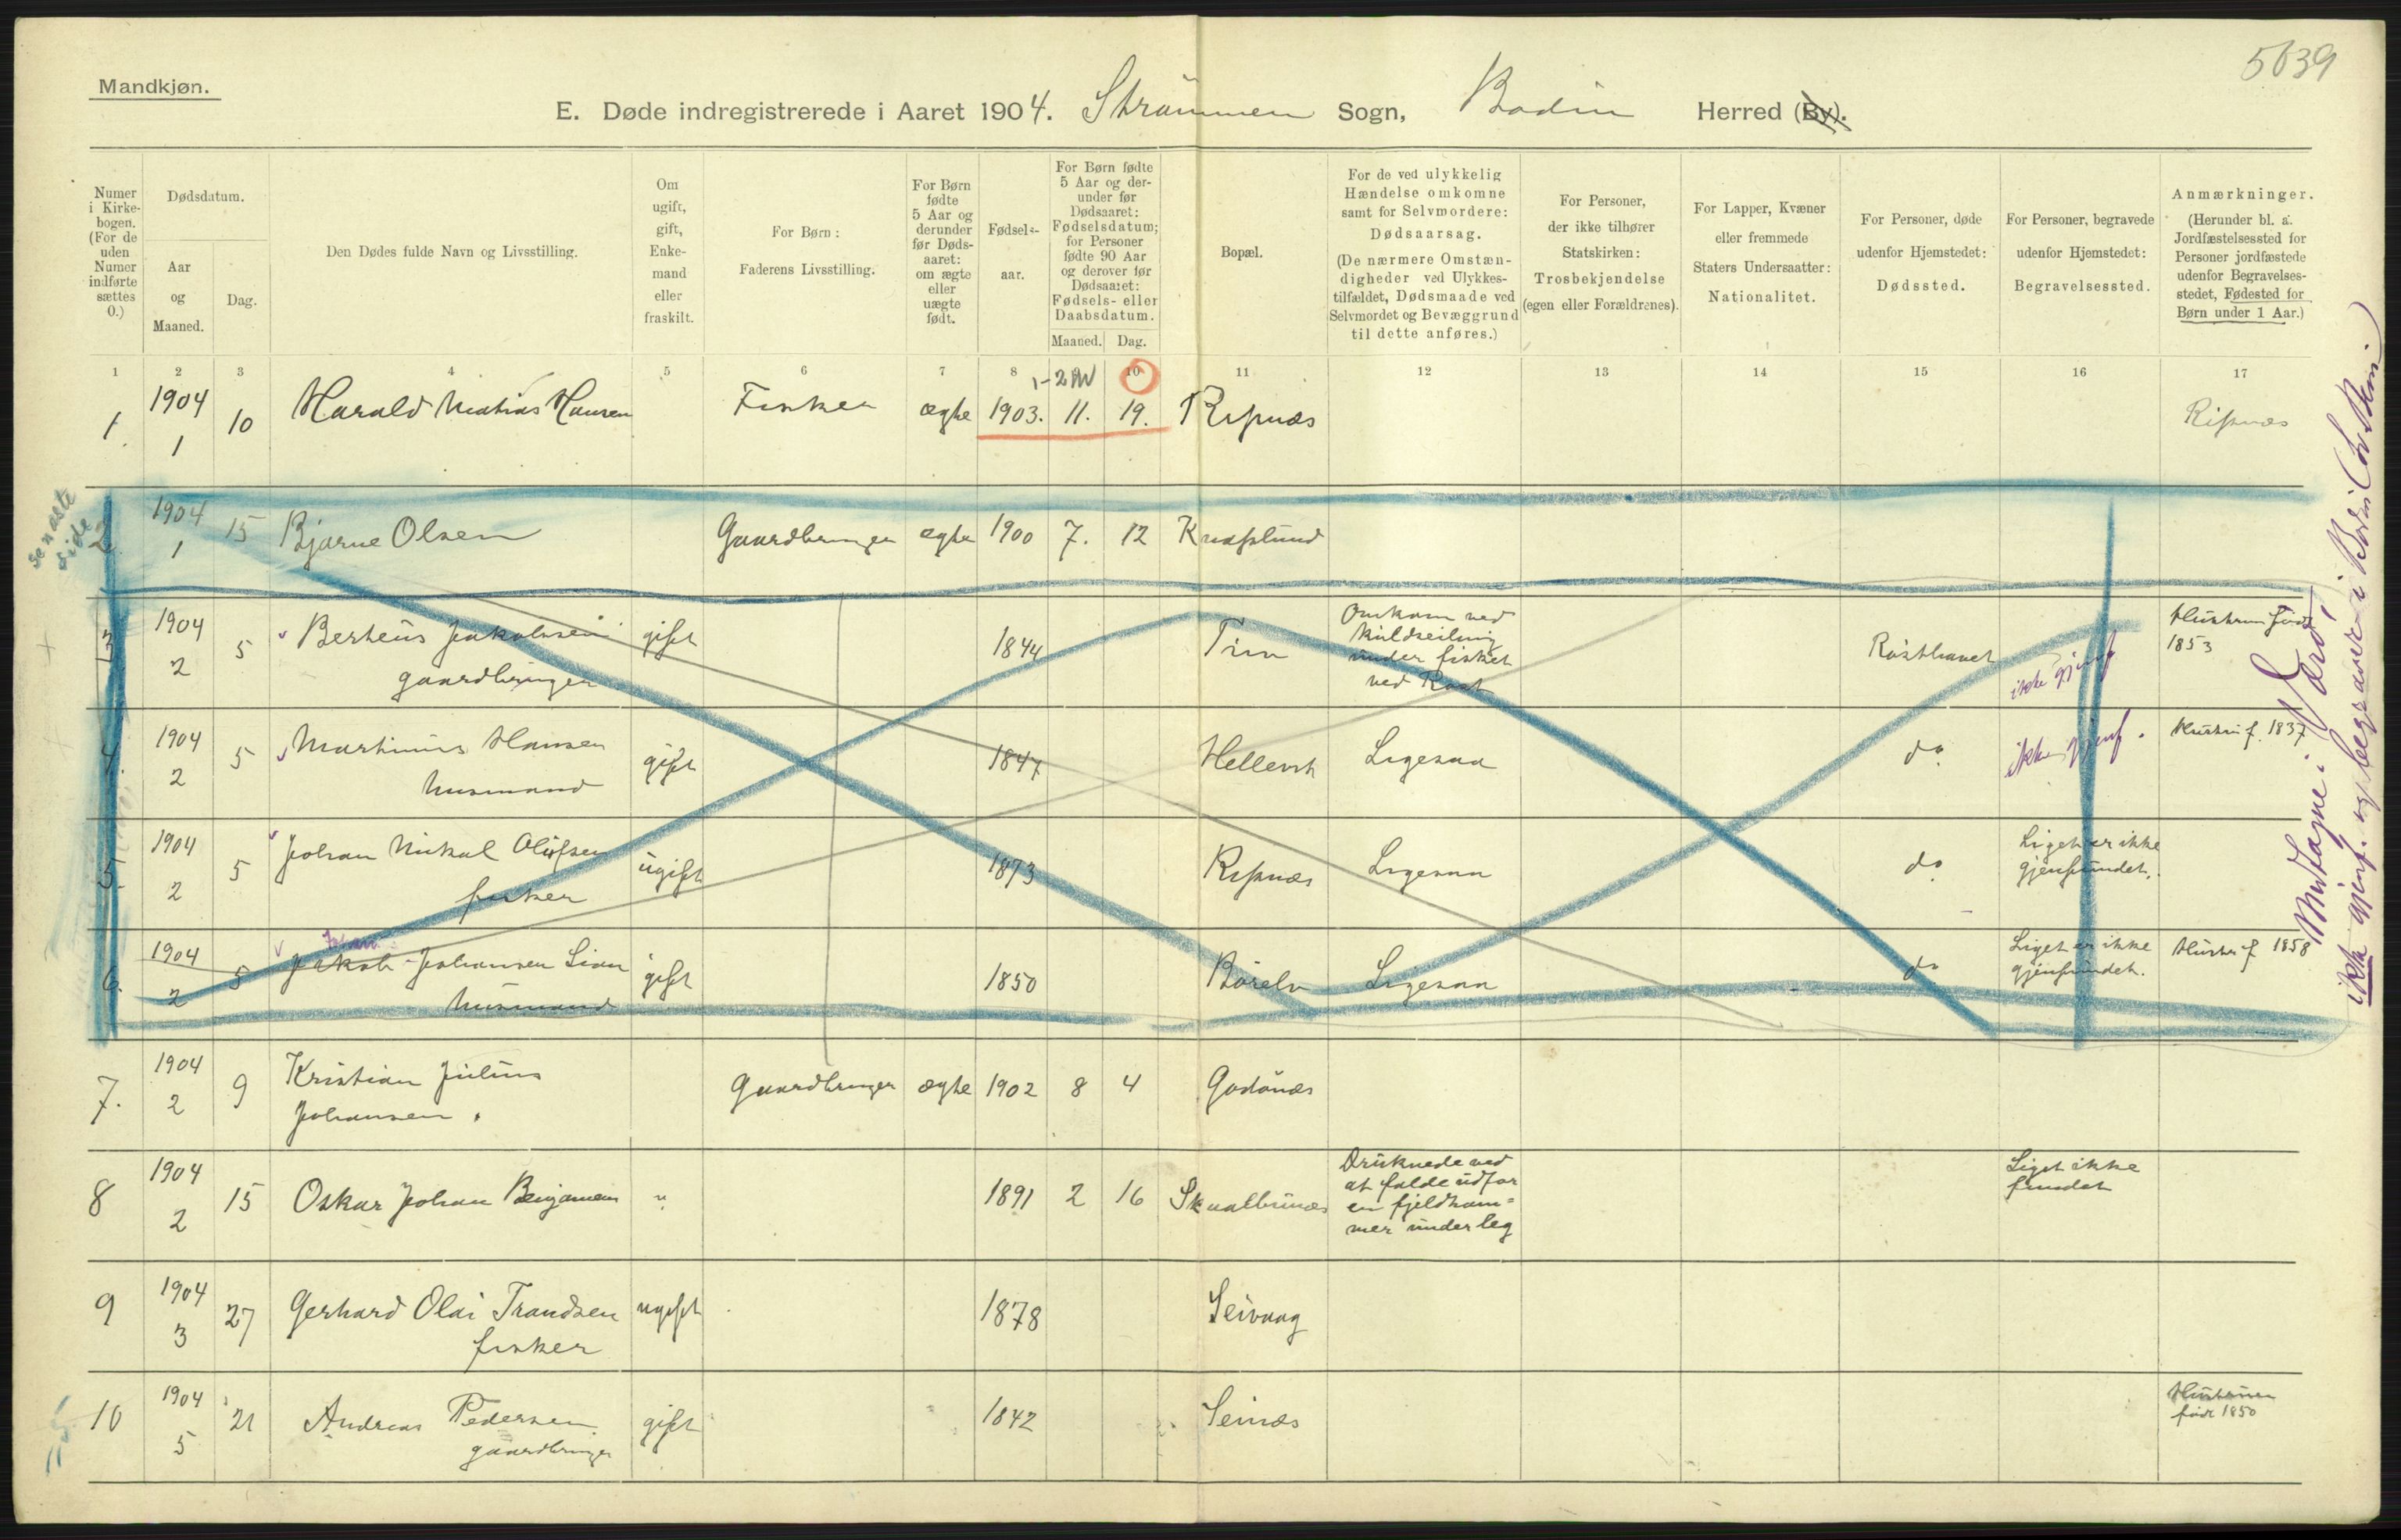 5639
Mandkjøn.
E. Døde indregistrerede i Aaret 1904. Strømmen Sogn, Bodin Herred (By).
Numer i Kirkebogen. (For de uden Numer indførte sættes 0.)
Dødsdatum.
Aar og Maaned.
Dag.
Den Dødes fulde Navn og Livsstilling.
Om ugift, gift, Enkemand eller fraskilt.
For Børn: Faderens Livsstilling.
For Børn fødte 5 Aar og derunder før Dødsaaret: om ægte eller uægte født.
Fødselsaar.
For Børn fødte 5 Aar og derunder før Dødsaaret: Fødselsdatum; for Personer fødte 90 Aar og derover før Dødsaaret: Fødsels- eller Daabsdatum.
Maaned. Dag.
Bopæl.
For de ved ulykkelig Hændelse omkomne samt for Selvmordere: Dødsaarsag. (De nærmere Omstændigheder ved Ulykkestilfældet, Dødsmaade ved Selvmordet og Bevæggrund til dette anføres.)
For Personer, der ikke tilhører Statskirken: Trosbekjendelse (egen eller Forældrenes).
For Lapper, Kvæner eller fremmede Staters Undersaatter: Nationalitet.
For Personer, døde udenfor Hjemstedet: Dødssted.
For Personer, begravede udenfor Hjemstedet: Begravelsessted.
Anmærkninger. (Herunder bl. a. Jordfæstelsessted for Personer jordfæstede udenfor Begravelsesstedet, Fødested for Børn under 1 Aar.)
1 2 3 4 5 6 7 8 9 10 11 12 13 14 15 16 17
1. 1904 1 10 Harald Matias Hansen Fisker ægte 1903. 11. 19. Ripnæs Ripnæs
seneste side
2. 1904 1 15 Bjarne Olsen Gaardbruger ægte 1900 7. 12 Knaplund
3 1904 2 5 Berteus Jakobsen gaardbruger gift 1844 Tuv Omkom ved kuldseiling under fisket ved Røst Rösthavet ikke gjenf Hustruen født 1853
4. 1904 2 5 Martinus Hansen husmand gift 1847 Hellevik Ligesaa do ikke gjenf. Hustru f. 1837
5. 1904 2 5 Johan Nikal Olufsen fisker ugift 1873 Ripnæs Ligesaa do Liget er ikke gjenfundet.
6. 1904 2 5 Jakob Johansen Lian husmand gift 1850 Börelv Ligesaa do Liget er ikke gjenfundet. Hustru f 1858
7. 1904 2 9 Kristian Julius Johansen. Gaardbruger ægte 1902 8 4 Godönæs
8 1904 2 15 Oskar Johan Benjaminsen " 1891 2 16 Skualbunæs Druknede ved at falde udfor en fjeldhammer under leg Liget ikke fundet
9 1904 3 27 Gerhard Olai Trondsen fisker ugift 1878 Seivaag
10 1904 5 21 Andreas Pedersen gaardbruger gift 1842 Seinæs Hustruen født 1850
ikke gjenf. og begraver i Bodin